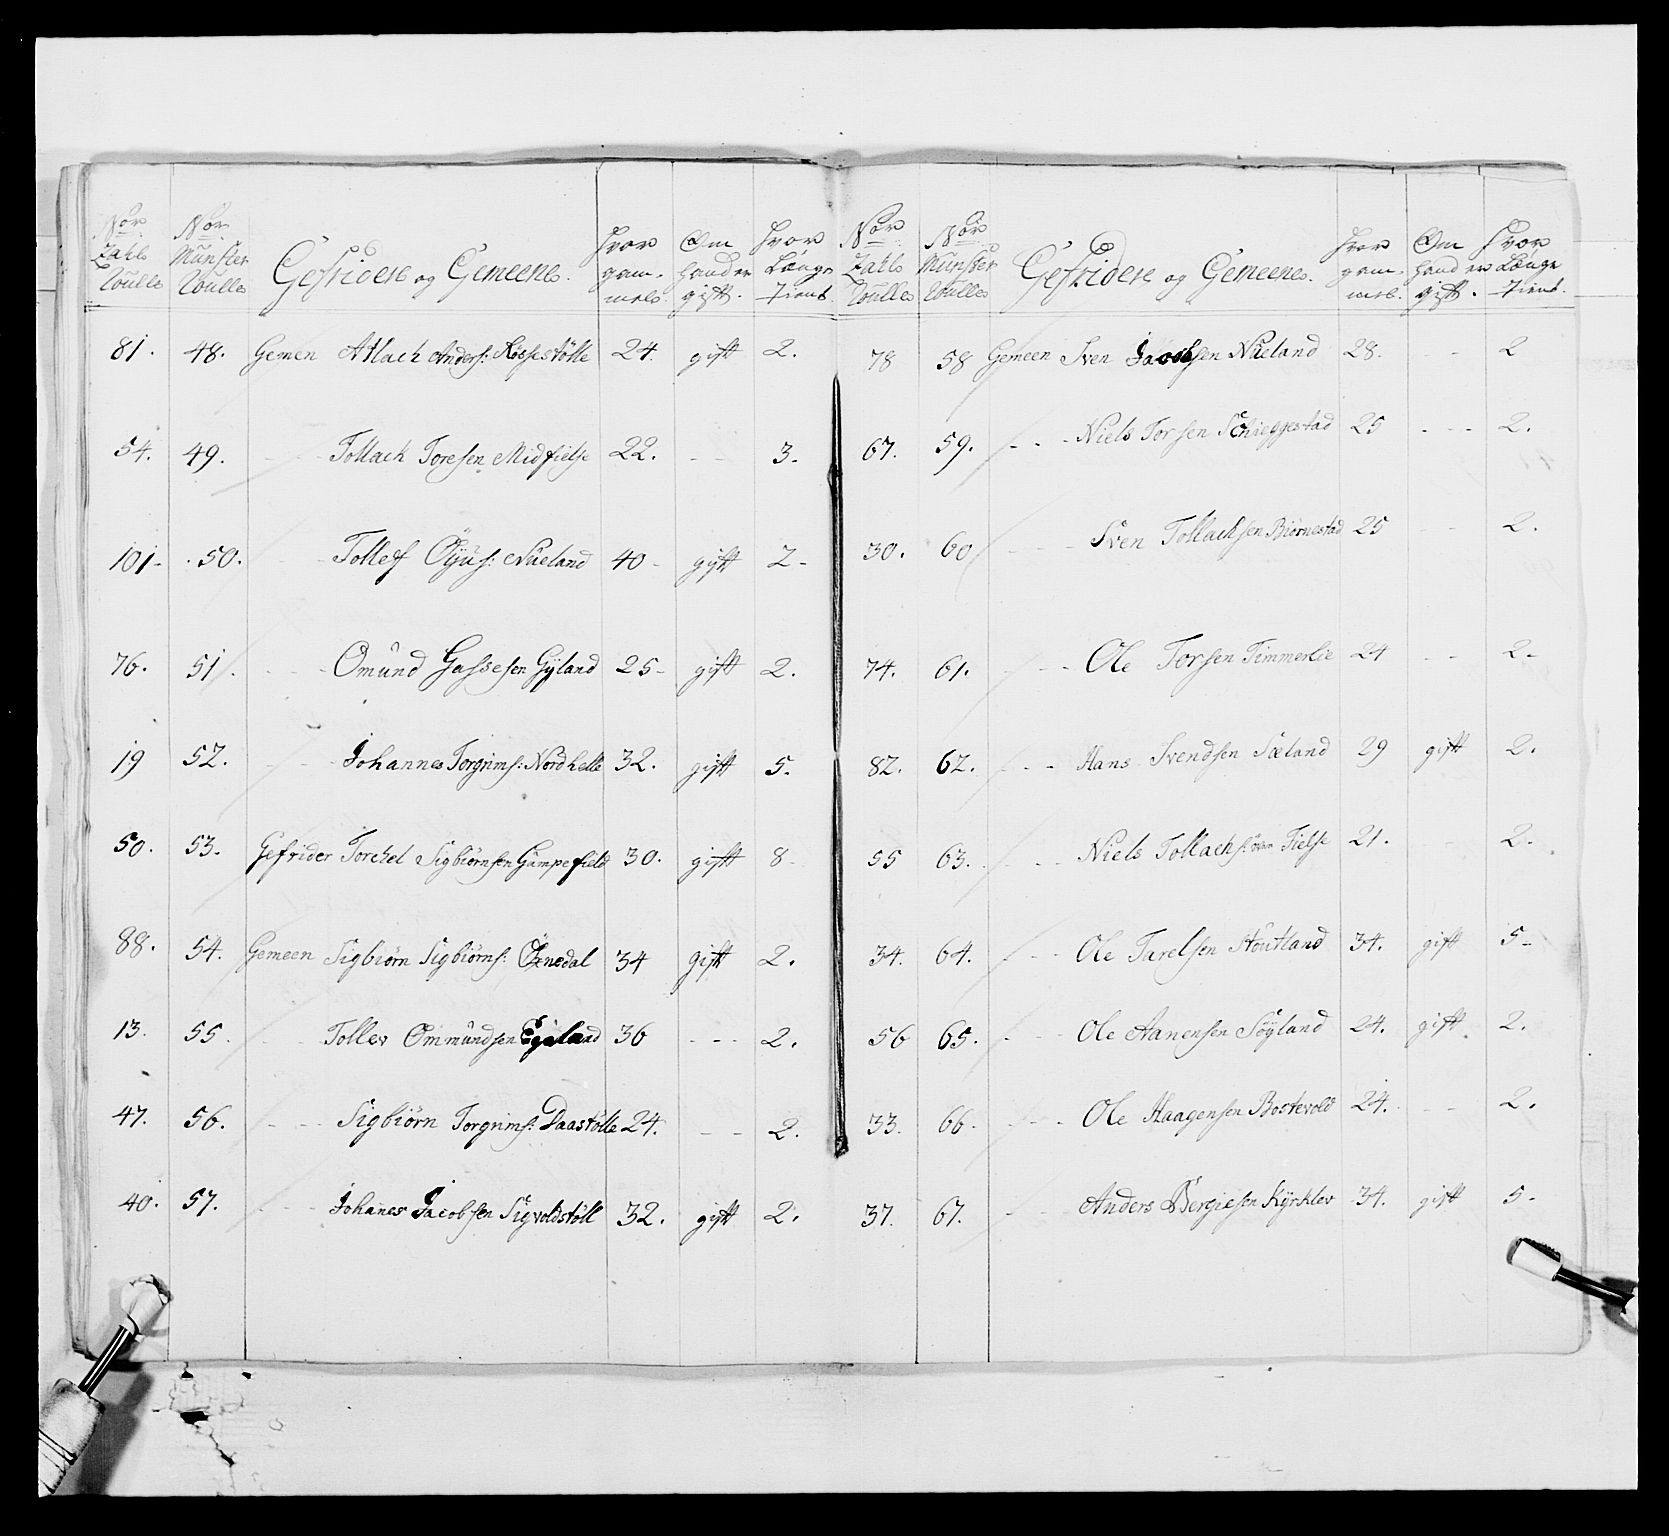 Nor Zahls Roulles | Nor Münster Roulles | Gefridere og Gemeenes. | hvor gammels. | Om hand er gift. | hvor Længe Tient.
81. 48. Gemen Atlach Anders: Røssestølle 24. gift 2.
54. 49. - - Tollach Toresen Midfielse 22. - - 3.
101- 50. - - Tollef Öÿus: Nueland 40- gift 2-
76. 51. - - Omund Gassesen Gÿland 25- gift 2.
19 52. - - Johannes Torgrims: Nordhelle 32. gift 5.
50. 53. Gefrider Torchel Sigbiørnsen Gumpefield 30. gift 8
88. 54. Gemeen Sigbiørn Sigbiørns: Öxnedal 34 gift 2.
13. 55. - - Tollev Ommundsen Egeland 36 - - - 2.
47. 56. - - Sigbiörn Torgrims: Daastølle 24. - - 2.
40. 57. - - Johanes Jacobsen Sigvoldstøll 32. gift 2.
Nor Zahls Roulles | Nor Münster Roulles | Gefridere og Gemeenes. | hvor gammel. | Om hand er gift. | hvor Længe Tient.
78 58 Gemeen Sven Jacobsen Nueland 28. - - 2
67. 59. - - Niels Torsen Schieggestad 25 - - - 2.
30. 60 - - Sven Tollachsen Biørnestad 25 - - 2.
74. 61. - - Ole Torsen Timmerlie 24 - - 2.
82. 62. - - Hans Svendsen Sæland 29 gift 2.
55 63. - - Niels Tollachs: øvre Fielse 21. - - 2.
34. 64. - - Ole Tarelsen Stoutland 34. gift 5-
56 65. - - Ole Aanensen Söÿland 24. gift 2.
33. 66. - - Ole Haagensen Bostevold 24. - - 2.
37. 67. - - Anders Bergiesen Kÿrklev 34. gift 5-